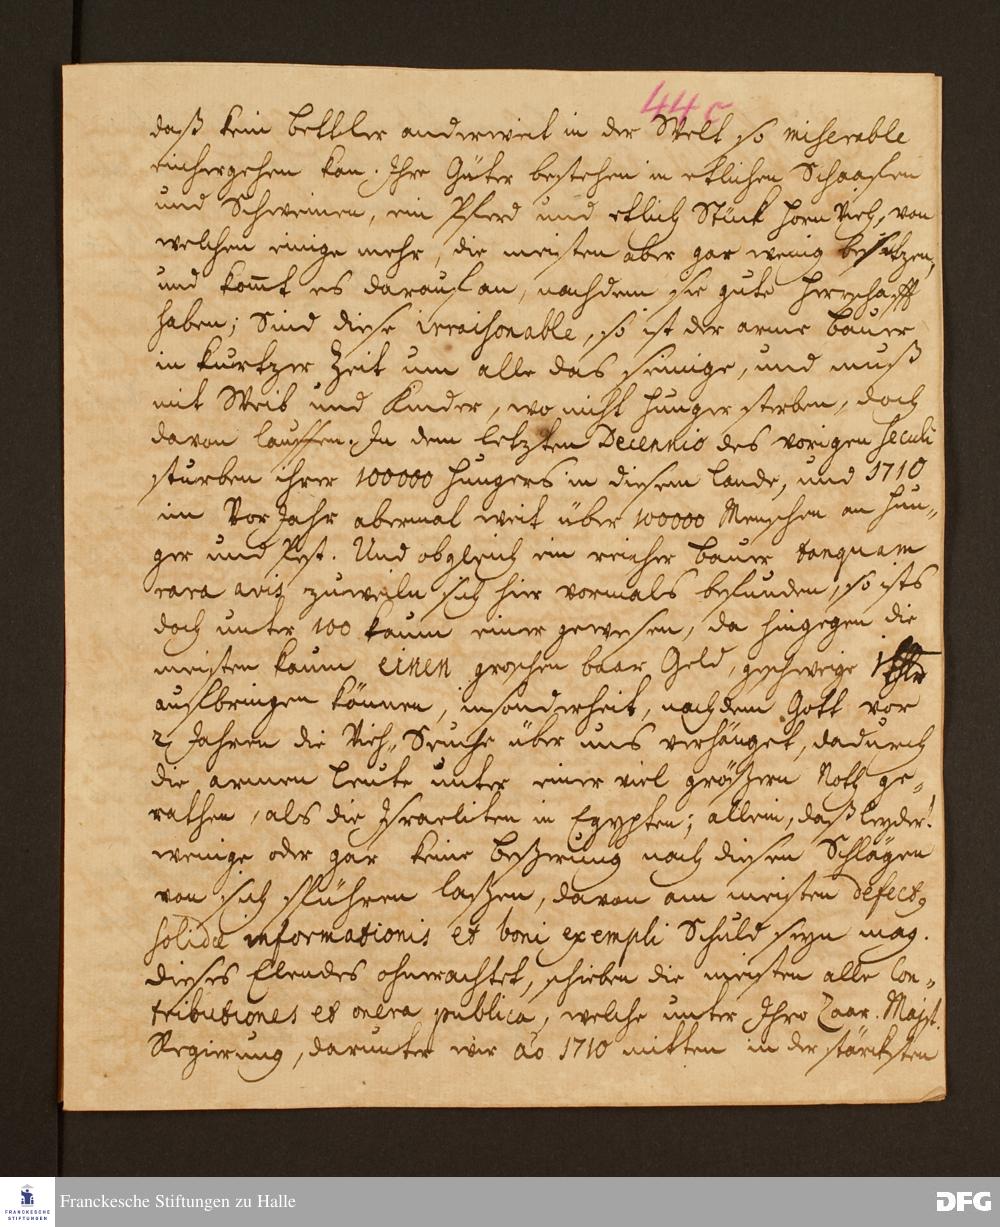 44c
daß kein bettler anderweit in der Welt so miserable
einhergehen kan. Ihre Güter bestehen in etlichen Schaafen
und Schweinen, ein Pferd und etlich Stück Horn Vieh, von
welchen einige mehr, die meisten aber gar wenig besitzen,
und kom̄t es darauf an, nachdem sie gute Herrschafft
haben; Sind diese irraisonable, so ist der arme Bauer
in kurtzer Zeit um alle das seinige, und muß
mit Weib und Kinder, wo nicht Hunger sterben, doch
davon lauffen. In dem letzten Decennio des vorigen Seculi
sturben ihrer 100000 Hungers in diesem Lande, und 1710
im Vor Jahr abermal weit über 100000 Menschen an Hun-
ger und Pest. Und obgleich ein reicher Bauer tanquam
rara avis zuweiln sich hier vormals befunden, so ists
doch unter 100 kaum einer gewesen, da hingegen die
meisten kaum einen groschen baar Geld, geschweige 1 Thlr
aufbringen können, insonderheit, nachdem Gott vor
2 Jahren die Vieh-Seuche über uns verhänget, dadurch
die armen Leute unter einer viel größern Noth ge-
rathen, als die Israeliten in Egypten; allein, daß leyder!
wenige oder gar keine Beßerung nach diesen Schlägen
von sich spühren laßen, davon am meisten defectq
solidæ informationis et boni exempli Schuld seyn mag.
Dieses Elendes ohnerachtet, schieben die meisten alle Con-
tributiones et onera publica, welche unter Ihro Czaar. Majst.
Regierung, darunter wir ao 1710 mitten in der stärksten
Franckesche Stiftungen zu Halle
FRANCKESCHE
STIFTUNGEN
DFG